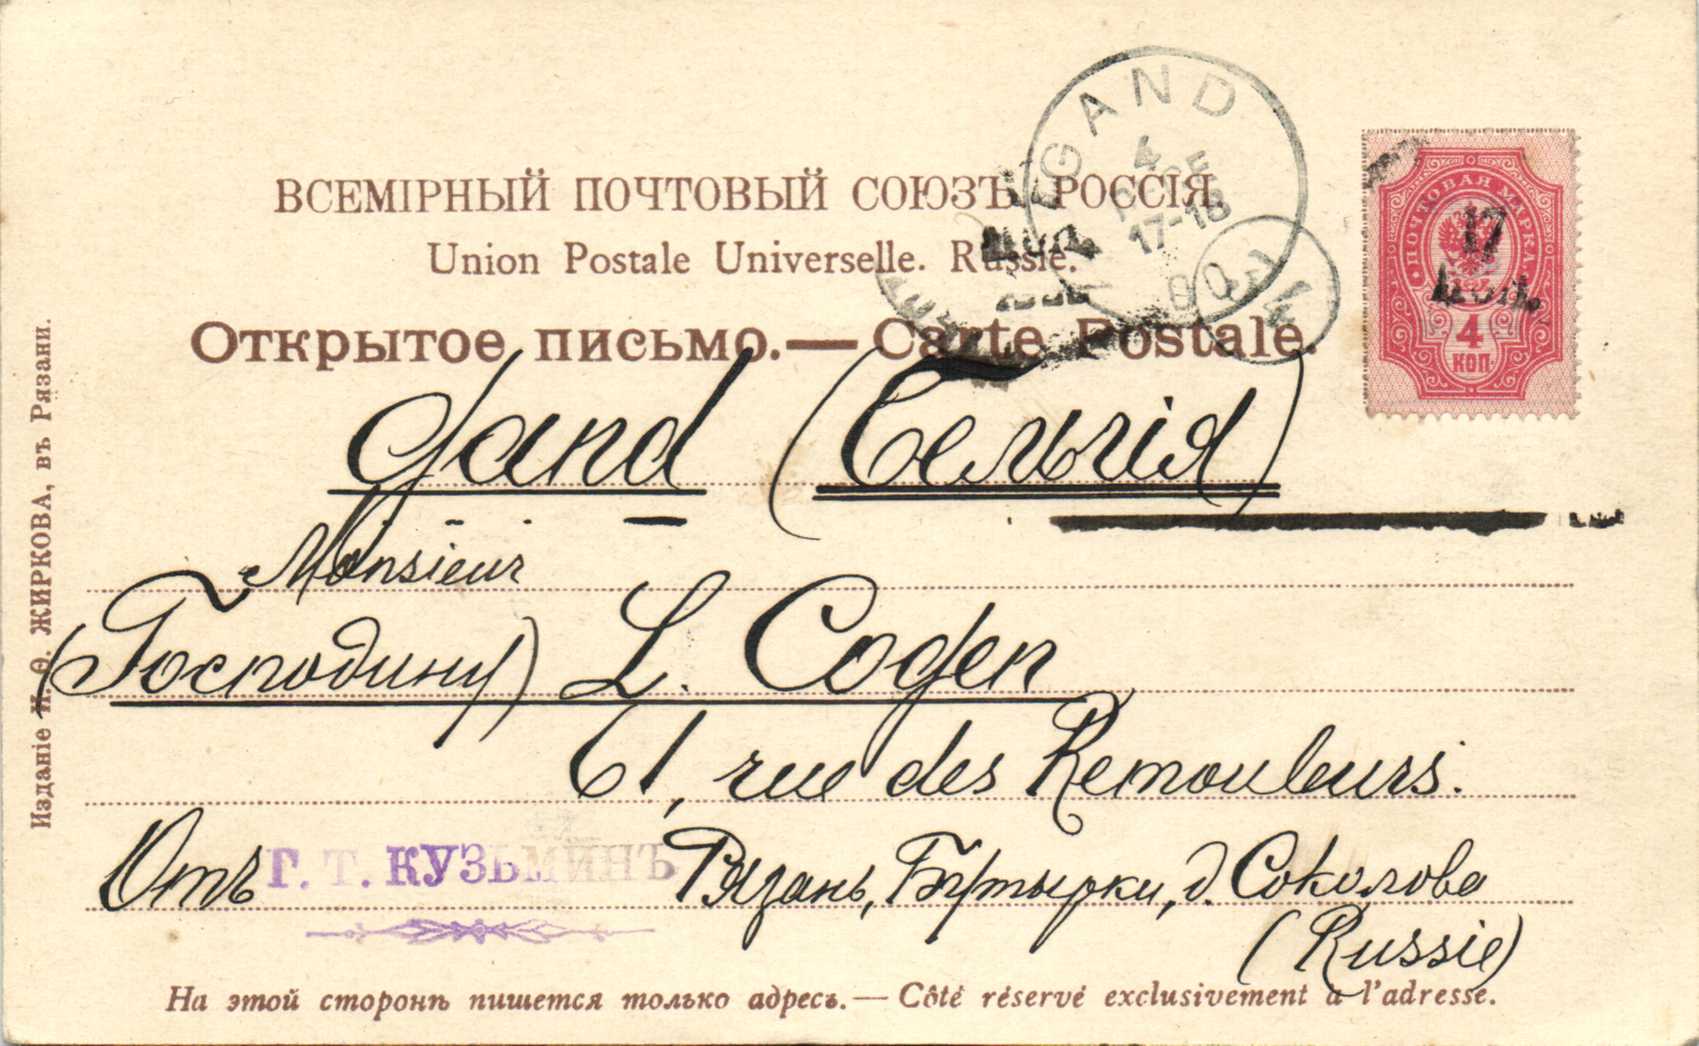 ВСЕМІРНЫЙ ПОЧТОВЫЙ СОЮЗЪ РОССІЯ.
Union Postale Universelle. Russie.
Открытое письмо.—Carte Postale.
GAND
4
17-18
ПОЧТОВАЯ МАРКА
17
4
КОП
Gand (Бельгія)
Monsieur
(Господину) L. Cogen
61, rue des Remouleurs.
Отъ Г. Т. КУЗЬМИНЪ Рязань, Бутырки, д. Соколова
(Russie)
На этой сторонѣ пишется только адресъ.—Côté réservé exclusivement à l'adresse.
Изданіе И. Ѳ. ЖИРКОВА, въ Рязани.